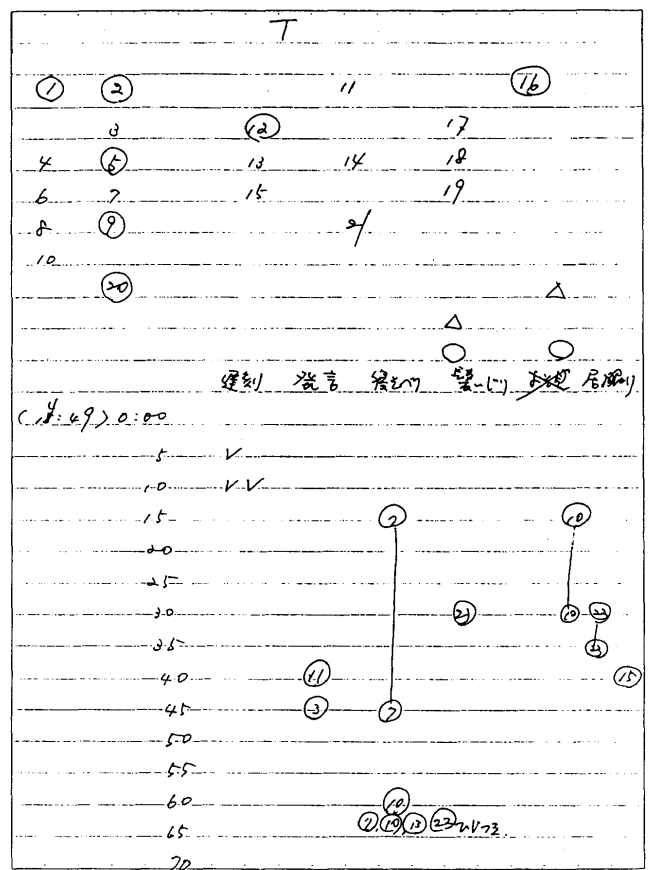 T
① ② 11 ⑯
3 ⑫ 17
4 ⑤ 13 14 18
6 7 15 19
8 ⑨ 21
10
⑳ △
△
○ ○
遅刻 発言 寝そべり 髪いじり 居眠り
:49) 0:00
5 ✓
10 ✓✓
15 ⑦ ⑩
20
25
30 ㉑ ⑩ ㉓
35 ㉓
40 ⑪ ⑮
45 ③ ⑦
50
55
60 ⑩
⑦ ⑩ ⑬ ㉓
65
70